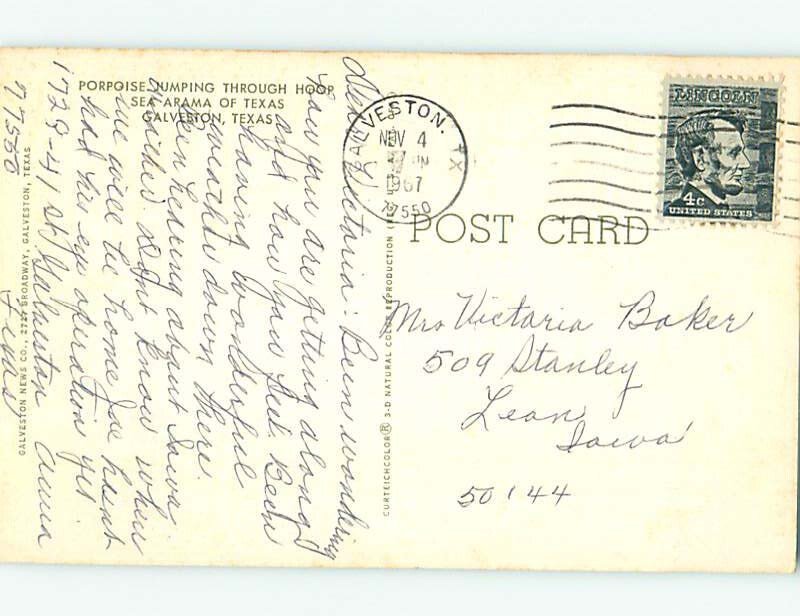 PORPOISE JUMPING THROUGH HOOP
SEA-ARAMA OF TEXAS
GALVESTON, TEXAS
Dear Victoria: Been wondering
how you are getting along
and how you feel. Been
having wonderful
weather down there.
Been hearing about Iowa
weather. Don't know when
we will be home Joe hasnt
had his eye operation yet.
1728-41 St Galveston Anna
77550 Texas
GALVESTON NEWS CO., 2727 BROADWAY, GALVESTON, TEXAS
CURTEICHCOLOR® 3-D NATURAL COLOR REPRODUCTION
GALVESTON. TX
NOV 4
PM
1967
77550
LINCOLN
4c
UNITED STATES
POST CARD
Mrs Victoria Baker
509 Stanley
Leon
Iowa
50144